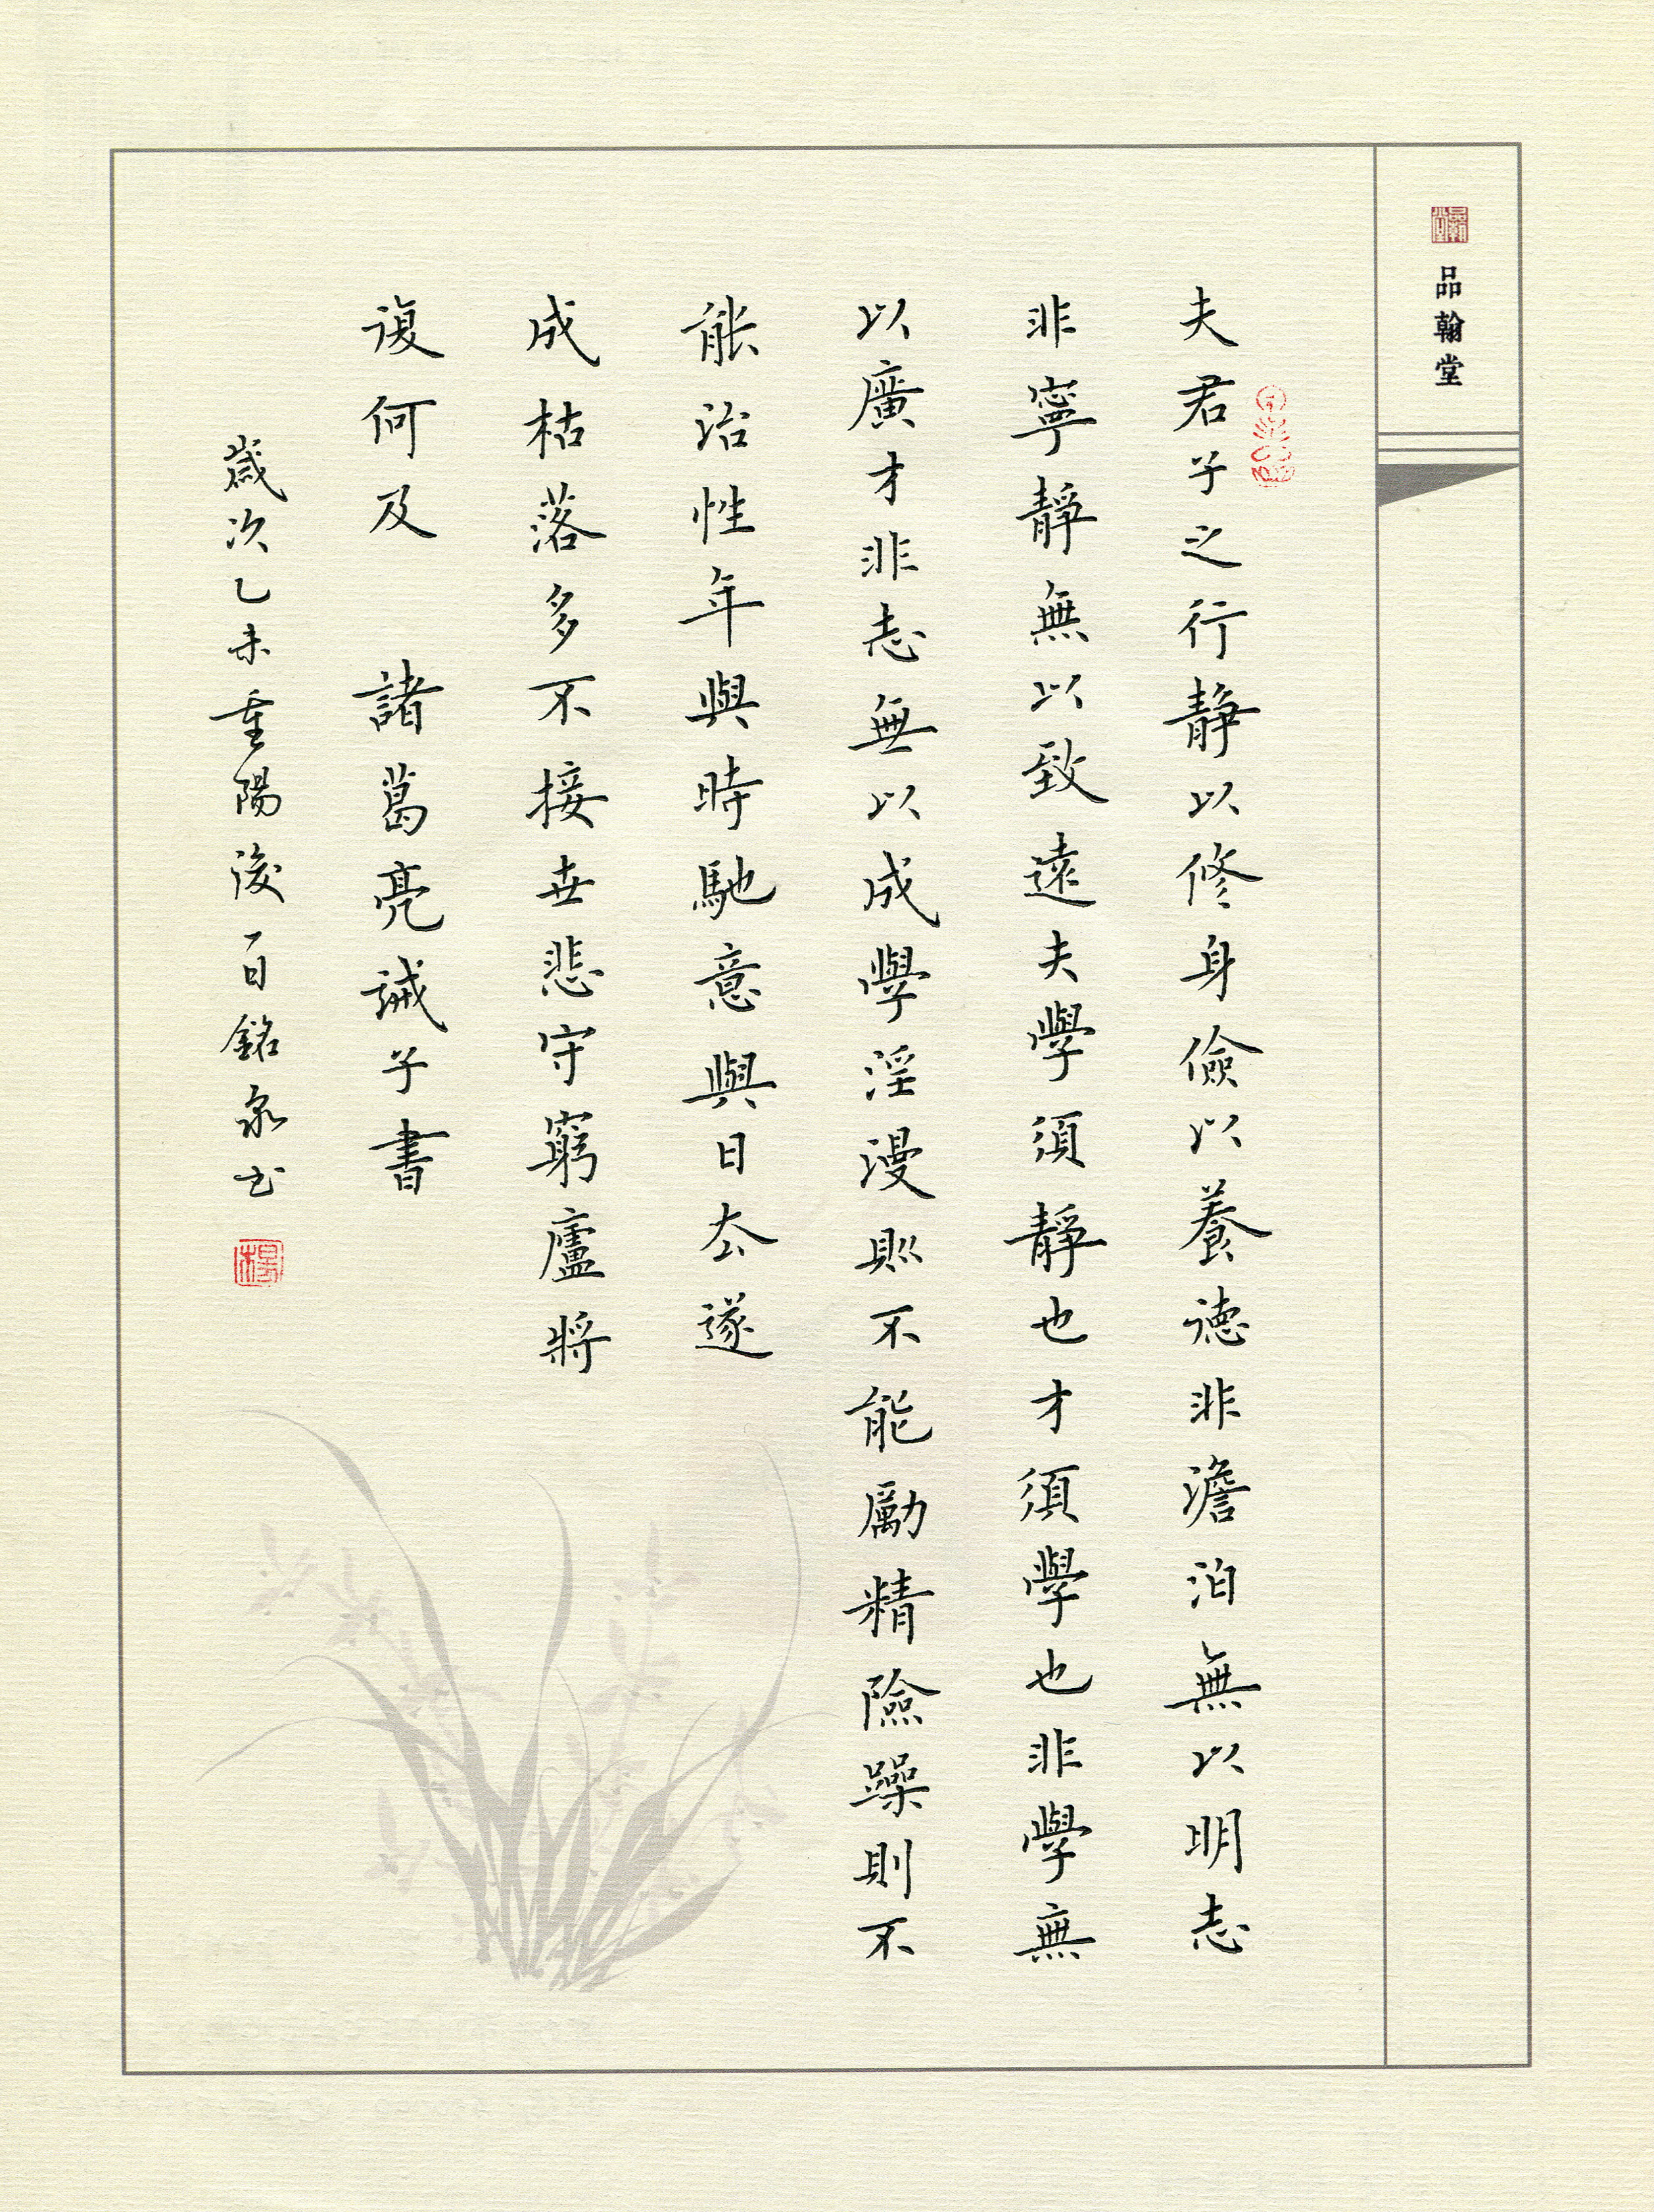 品翰堂
夫君子之行靜以修身儉以養德非澹泊無以明志
非寧靜無以致遠夫學須靜也才須學也非學無
以廣才非志無以成學淫漫則不能勵精險躁則不
能治性年與時馳意與日去遂
成枯落多不接世悲守窮廬將
復何及 諸葛亮誡子書
歲次乙未重陽後一日銘泉书
楊